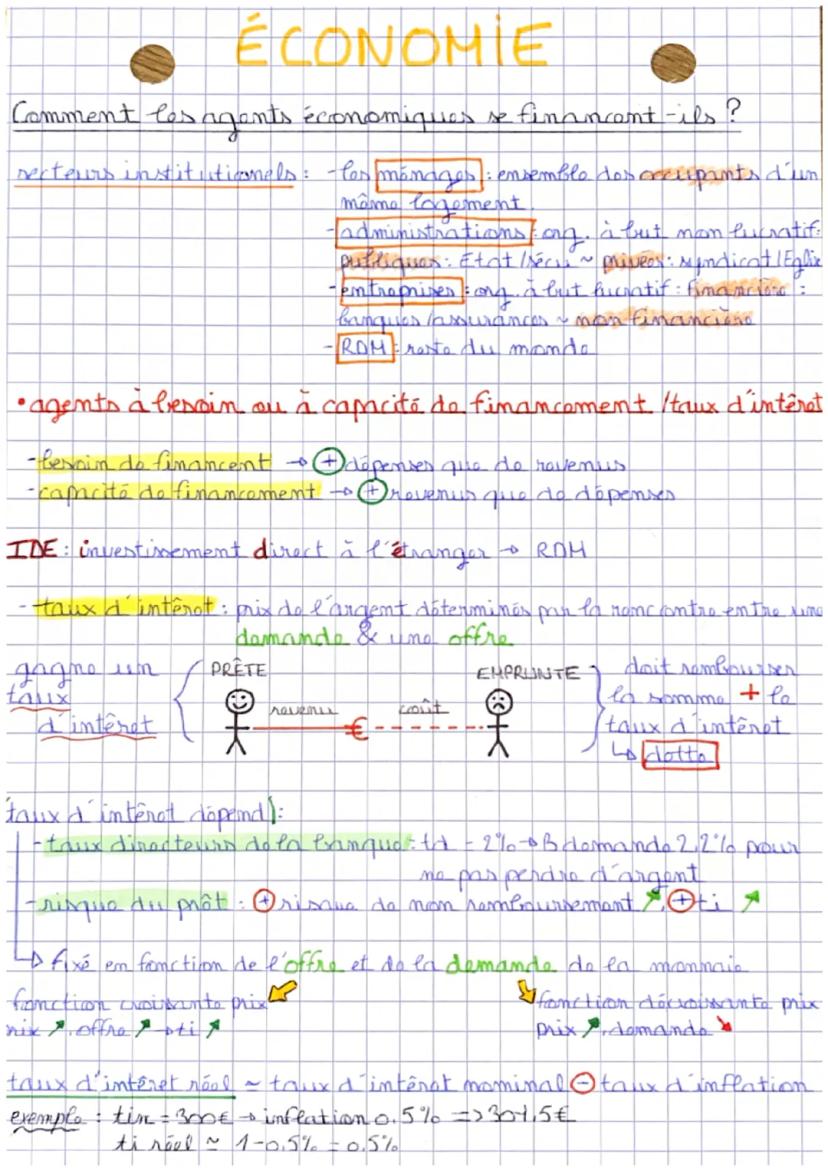 ÉCONOMIE
Comment les agents économiques se financent-ils ?
secteurs institutionnels : - les ménages : ensemble des occupants d'un
même logement
- administrations : org. à but non lucratif :
publiques : État / sécu ~ privées : syndicat / Eglise
- entreprises : org. à but lucratif : financière :
banques / assurances ~ non financière
- RDM : reste du monde
• agents à besoin ou à capacité de financement / taux d'intérêt
- besoin de financent → + dépenses que de revenus
- capacité de financement → + revenus que de dépenses
IDE : investissement direct à l'étranger → RDM
- taux d'intérêt : prix de l'argent déterminés par la rencontre entre une
demande & une offre
gagne un taux d'intérêt
PRÊTE
revenu
€
coût
EMPRUNTE
doit rembourser
la somme + le
taux d'intérêt
↳ dette
taux d'intérêt dépend :
- taux directeurs de la banque : td - 2% → B demande 2,2% pour
ne pas perdre d'argent
- risque du prêt : + risque de non remboursement ↗, + ti ↗
↳ fixé en fonction de l'offre et de la demande de la monnaie
fonction croissante prix
prix ↗, offre ↗ → ti ↗
fonction décroissante prix
prix ↗, demande ↘
taux d'intérêt réel ≃ taux d'intérêt nominal - taux d'inflation
exemple : tin = 300€ → inflation 0.5% => 301,5€
ti réel ≃ 1-0,5% = 0,5%